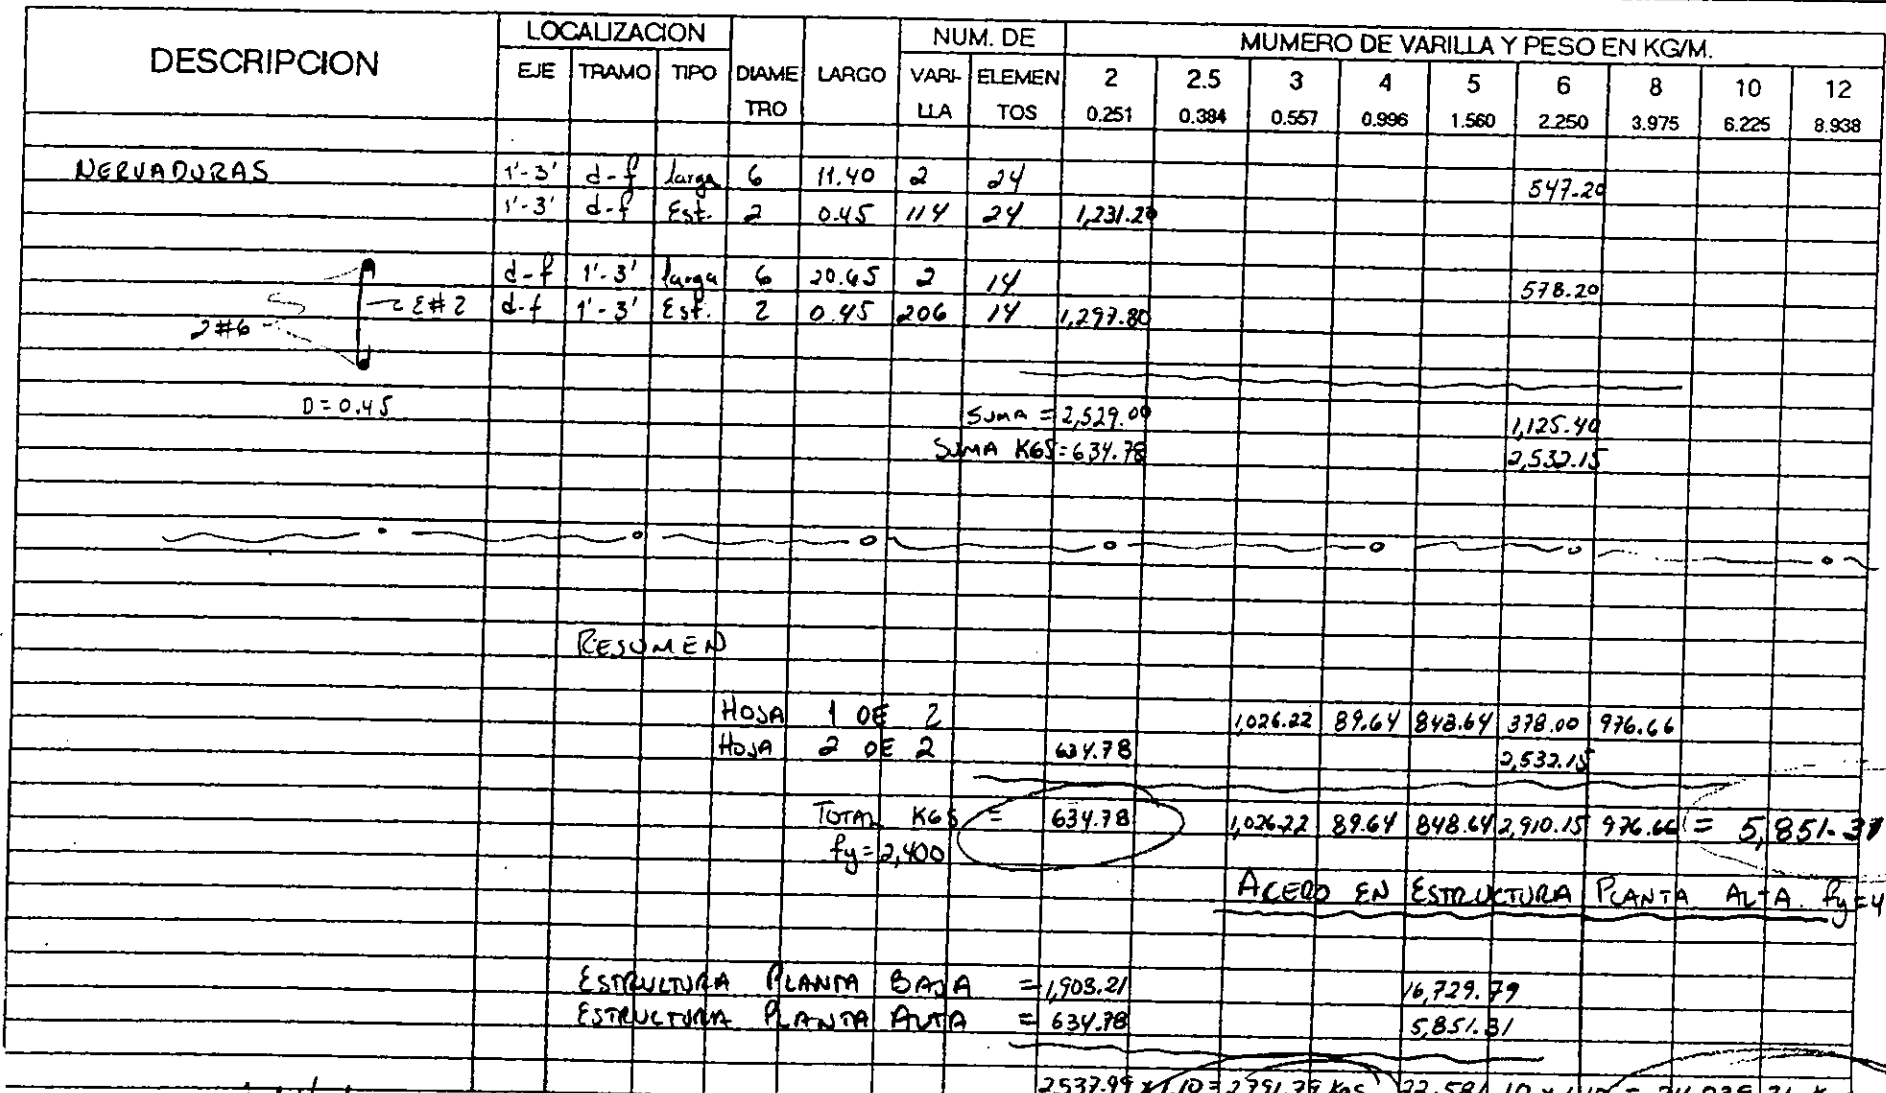 DESCRIPCION LOCALIZACION NUM. DE MUMERO DE VARILLA Y PESO EN KG/M.
EJE TRAMO TIPO DIAME LARGO VARI- ELEMEN 2 2.5 3 4 5 6 8 10 12
TRO LLA TOS 0.251 0.384 0.557 0.996 1.560 2.250 3.975 6.225 8.938
NERVADURAS 1'-3' d-f larga 6 11.40 2 24 547.20
1'-3' d-f Est. 2 0.45 114 24 1,231.20
d-f 1'-3' larga 6 20.65 2 14 578.20
E#2 d-f 1'-3' Est. 2 0.45 206 14 1,297.80
2#6
D=0.45 SUMA = 2,529.00 1,125.40
SUMA KGS = 634.78 2,532.15
RESUMEN
HOJA 1 DE 2 1,026.22 89.64 848.64 378.00 976.66
HOJA 2 DE 2 634.78 2,532.15
TOTAL KGS = 634.78 1,026.22 89.64 848.64 2,910.15 976.66 = 5,851.31
fy=2,400
ACERO EN ESTRUCTURA PLANTA ALTA. fy=4
ESTRUCTURA PLANTA BAJA = 1,903.21 16,729.79
ESTRUCTURA PLANTA ALTA = 634.78 5,851.31
2537.99 x 1.10 = 2791.79 KGS 22,581.10 x 1.10 =